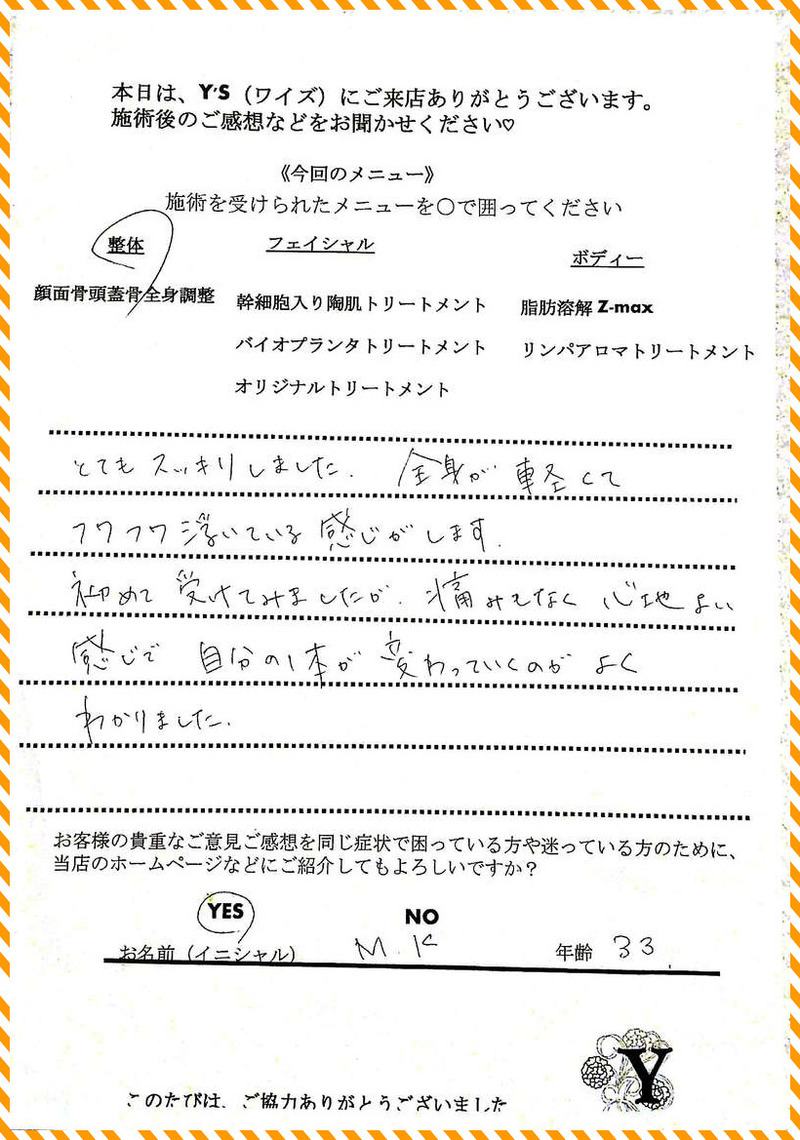 本日は、Y'S（ワイズ）にご来店ありがとうございます。
施術後のご感想などをお聞かせください♡
《今回のメニュー》
施術を受けられたメニューを〇で囲ってください
整体 フェイシャル ボディー
顔面骨頭蓋骨全身調整 幹細胞入り陶肌トリートメント 脂肪溶解 Z-max
バイオプランタトリートメント リンパアロマトリートメント
オリジナルトリートメント
とてもスッキリしました. 全身が 軽くて
フワフワ浮いている 感じがします.
初めて 受けてみましたが. 痛みもなく 心地よい
感じで 自分の体が 変わっていくのが よく
わかりました.
お客様の貴重なご意見ご感想を同じ症状で困っている方や迷っている方のために、
当店のホームページなどにご紹介してもよろしいですか？
YES NO
お名前（イニシャル） M.K 年齢 33
Y
このたびは、ご協力ありがとうございました